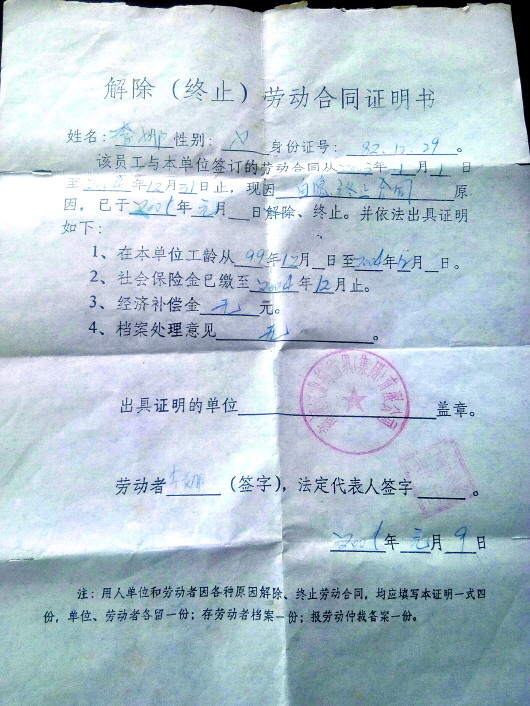 解除（终止）劳动合同证明书
姓名：李娜 性别：女 身份证号：82.12.29。
该员工与本单位签订的劳动合同从 年1月1日
至 年12月31日止，现因 自愿终止合同 原
因，已于 年元月 日解除、终止。并依法出具证明
如下：
1、在本单位工龄从99年12月 日至 年12月 日。
2、社会保险金已缴至2004年12月止。
3、经济补偿金 无 元。
4、档案处理意见 无 。
出具证明的单位 盖章。
劳动者 李娜 （签字），法定代表人签字 。
年元月9日
注：用人单位和劳动者因各种原因解除、终止劳动合同，均应填写本证明一式四
份，单位、劳动者各留一份；存劳动者档案一份；报劳动仲裁备案一份。